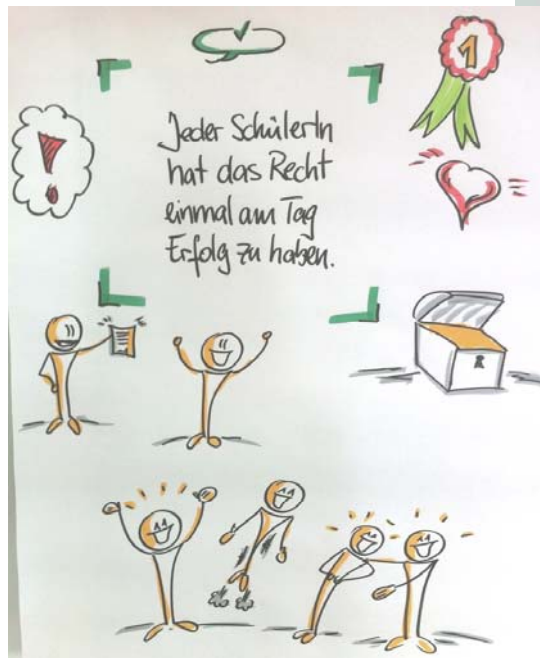 1
Jeder SchülerIn
hat das Recht
einmal am Tag
Erfolg zu haben.